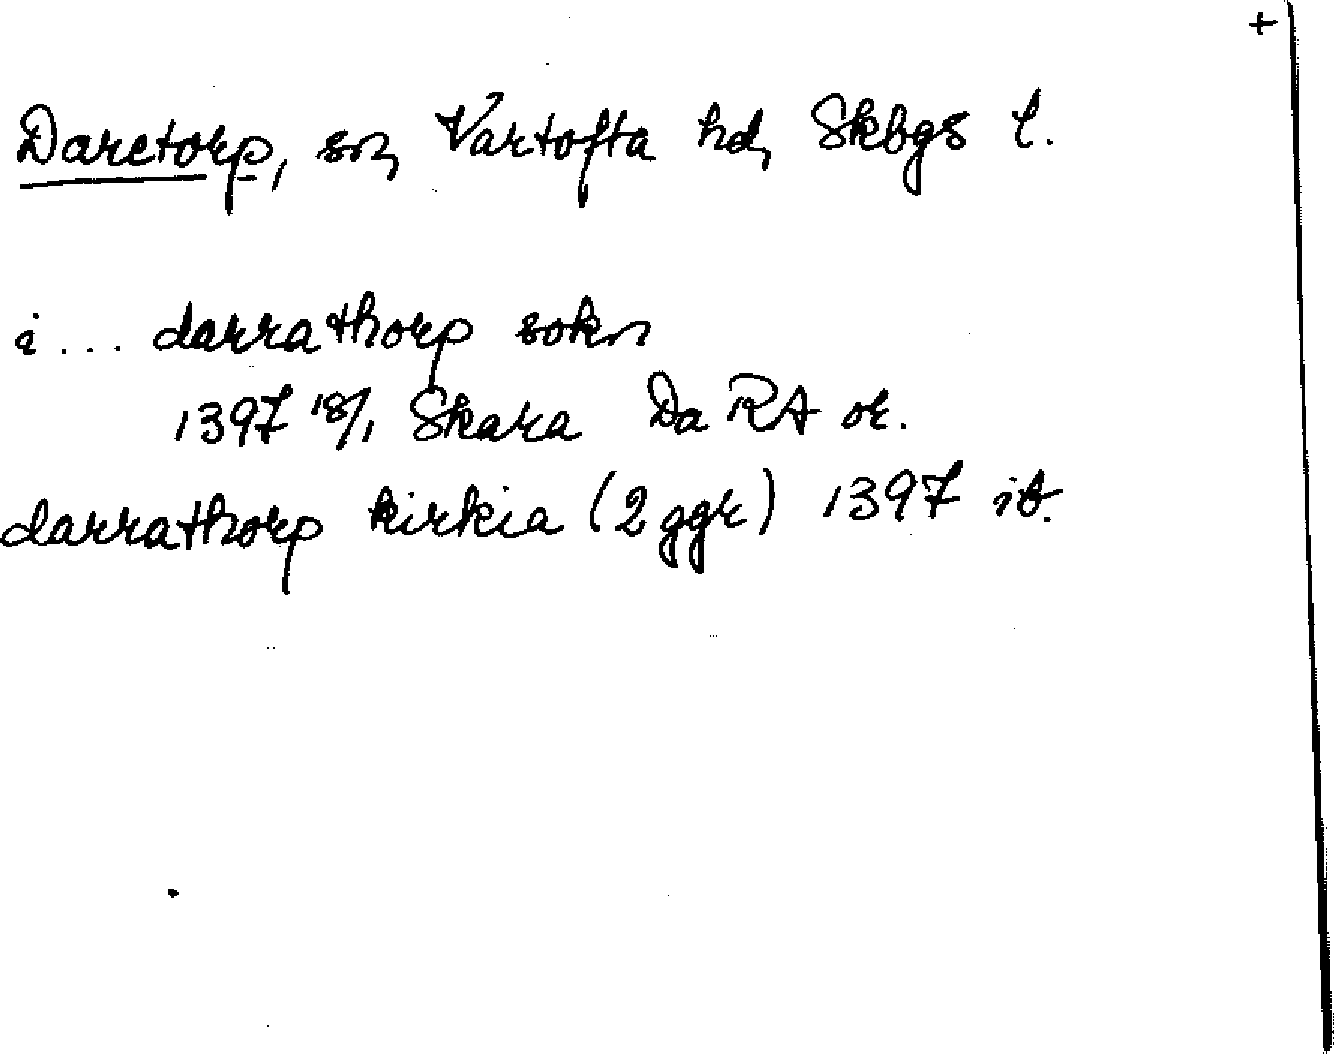 +
Daretorp, sn, Vartofta hd, Skbgs l.
i ... darrathorp sokn
1397 18/1 Skara Da RA or.
darrathorp kirkia (2 ggr) 1397 ib.